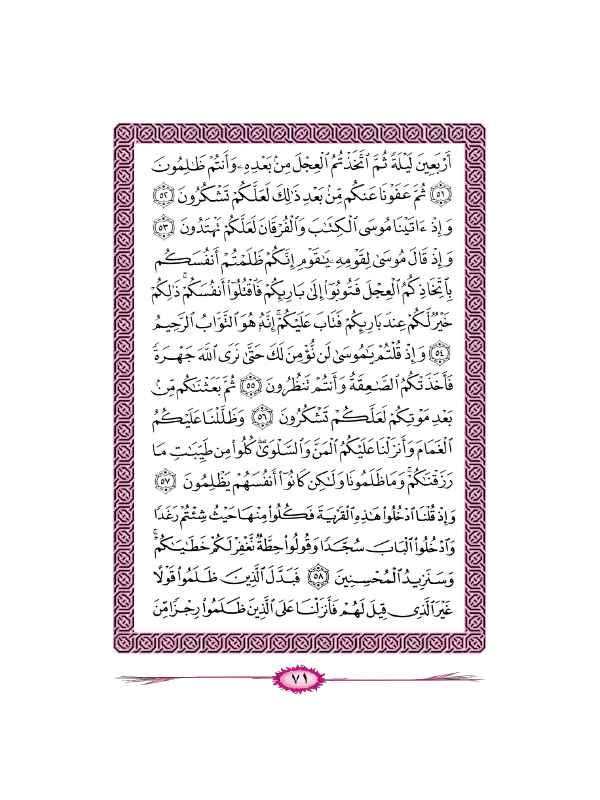 أَرْبَعِينَ لَيْلَةً ثُمَّ ٱتَّخَذْتُمُ ٱلْعِجْلَ مِنۢ بَعْدِهِۦ وَأَنتُمْ ظَٰلِمُونَ
٥١ ثُمَّ عَفَوْنَا عَنكُم مِّنۢ بَعْدِ ذَٰلِكَ لَعَلَّكُمْ تَشْكُرُونَ ٥٢
وَإِذْ ءَاتَيْنَا مُوسَى ٱلْكِتَٰبَ وَٱلْفُرْقَانَ لَعَلَّكُمْ تَهْتَدُونَ ٥٣
وَإِذْ قَالَ مُوسَىٰ لِقَوْمِهِۦ يَٰقَوْمِ إِنَّكُمْ ظَلَمْتُمْ أَنفُسَكُم
بِٱتِّخَاذِكُمُ ٱلْعِجْلَ فَتُوبُوٓا۟ إِلَىٰ بَارِيِٕكُمْ فَٱقْتُلُوٓا۟ أَنفُسَكُمْ ۚ ذَٰلِكُمْ
خَيْرٌ لَّكُمْ عِندَ بَارِيِٕكُمْ فَتَابَ عَلَيْكُمْ ۚ إِنَّهُۥ هُوَ ٱلتَّوَّابُ ٱلرَّحِيمُ
٥٤ وَإِذْ قُلْتُمْ يَٰمُوسَىٰ لَن نُّؤْمِنَ لَكَ حَتَّىٰ نَرَى ٱللَّهَ جَهْرَةً
فَأَخَذَتْكُمُ ٱلصَّٰعِقَةُ وَأَنتُمْ تَنظُرُونَ ٥٥ ثُمَّ بَعَثْنَٰكُم مِّنۢ
بَعْدِ مَوْتِكُمْ لَعَلَّكُمْ تَشْكُرُونَ ٥٦ وَظَلَّلْنَا عَلَيْكُمُ
ٱلْغَمَامَ وَأَنزَلْنَا عَلَيْكُمُ ٱلْمَنَّ وَٱلسَّلْوَىٰ ۖ كُلُوا۟ مِن طَيِّبَٰتِ مَا
رَزَقْنَٰكُمْ ۖ وَمَا ظَلَمُونَا وَلَٰكِن كَانُوٓا۟ أَنفُسَهُمْ يَظْلِمُونَ ٥٧
وَإِذْ قُلْنَا ٱدْخُلُوا۟ هَٰذِهِ ٱلْقَرْيَةَ فَكُلُوا۟ مِنْهَا حَيْثُ شِئْتُمْ رَغَدًا
وَٱدْخُلُوا۟ ٱلْبَابَ سُجَّدًا وَقُولُوا۟ حِطَّةٌ نَّغْفِرْ لَكُمْ خَطَٰيَٰكُمْ ۚ
وَسَنَزِيدُ ٱلْمُحْسِنِينَ ٥٨ فَبَدَّلَ ٱلَّذِينَ ظَلَمُوا۟ قَوْلًا
غَيْرَ ٱلَّذِى قِيلَ لَهُمْ فَأَنزَلْنَا عَلَى ٱلَّذِينَ ظَلَمُوا۟ رِجْزًا مِّنَ
٧١